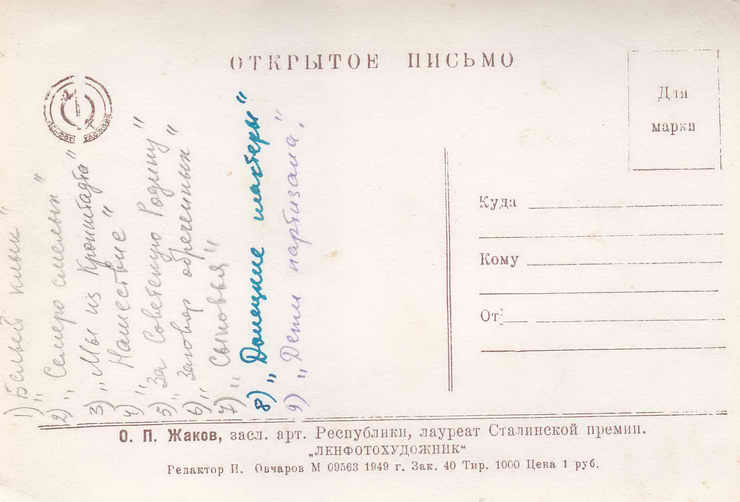 ОТКРЫТОЕ ПИСЬМО
Для
марки
Куда
Кому
От
1) „Белый клык"
2) „Семеро смелых"
3) „Мы из Кронштадта"
4) „Нашествие"
5) „За Советскую Родину"
6) „Заговор обреченных"
7) „Сыновья"
8) „Донецкие шахтеры"
9) „Дети партизана."
О. П. Жаков, засл. арт. Республики, лауреат Сталинской премии.
„ЛЕНФОТОХУДОЖНИК"
Редактор И. Овчаров М 09563 1949 г. Зак. 40 Тир. 1000 Цена 1 руб.